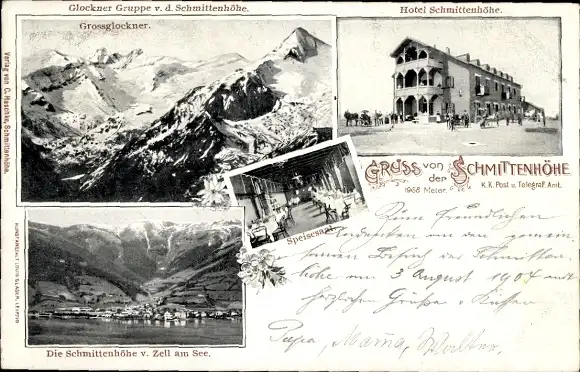 Glockner Gruppe v. d. Schmittenhöhe.
Grossglockner.
Hotel Schmittenhöhe.
Verlag von C. Haschke, Schmittenhöhe.
Gruss von der Schmittenhöhe
1968 Meter.
K. K. Post u. Telegraf Amt.
Speisesaal.
Zum freundlichen
Andenken an den gemein
samen Besuch der Schmitten
höhe am 3 August 1904 mit
herzlichen Grüßen u. Küssen
Papa, Mama, Walter.
Die Schmittenhöhe v. Zell am See.
KUNSTANSTALT LOUIS GLASER, LEIPZIG